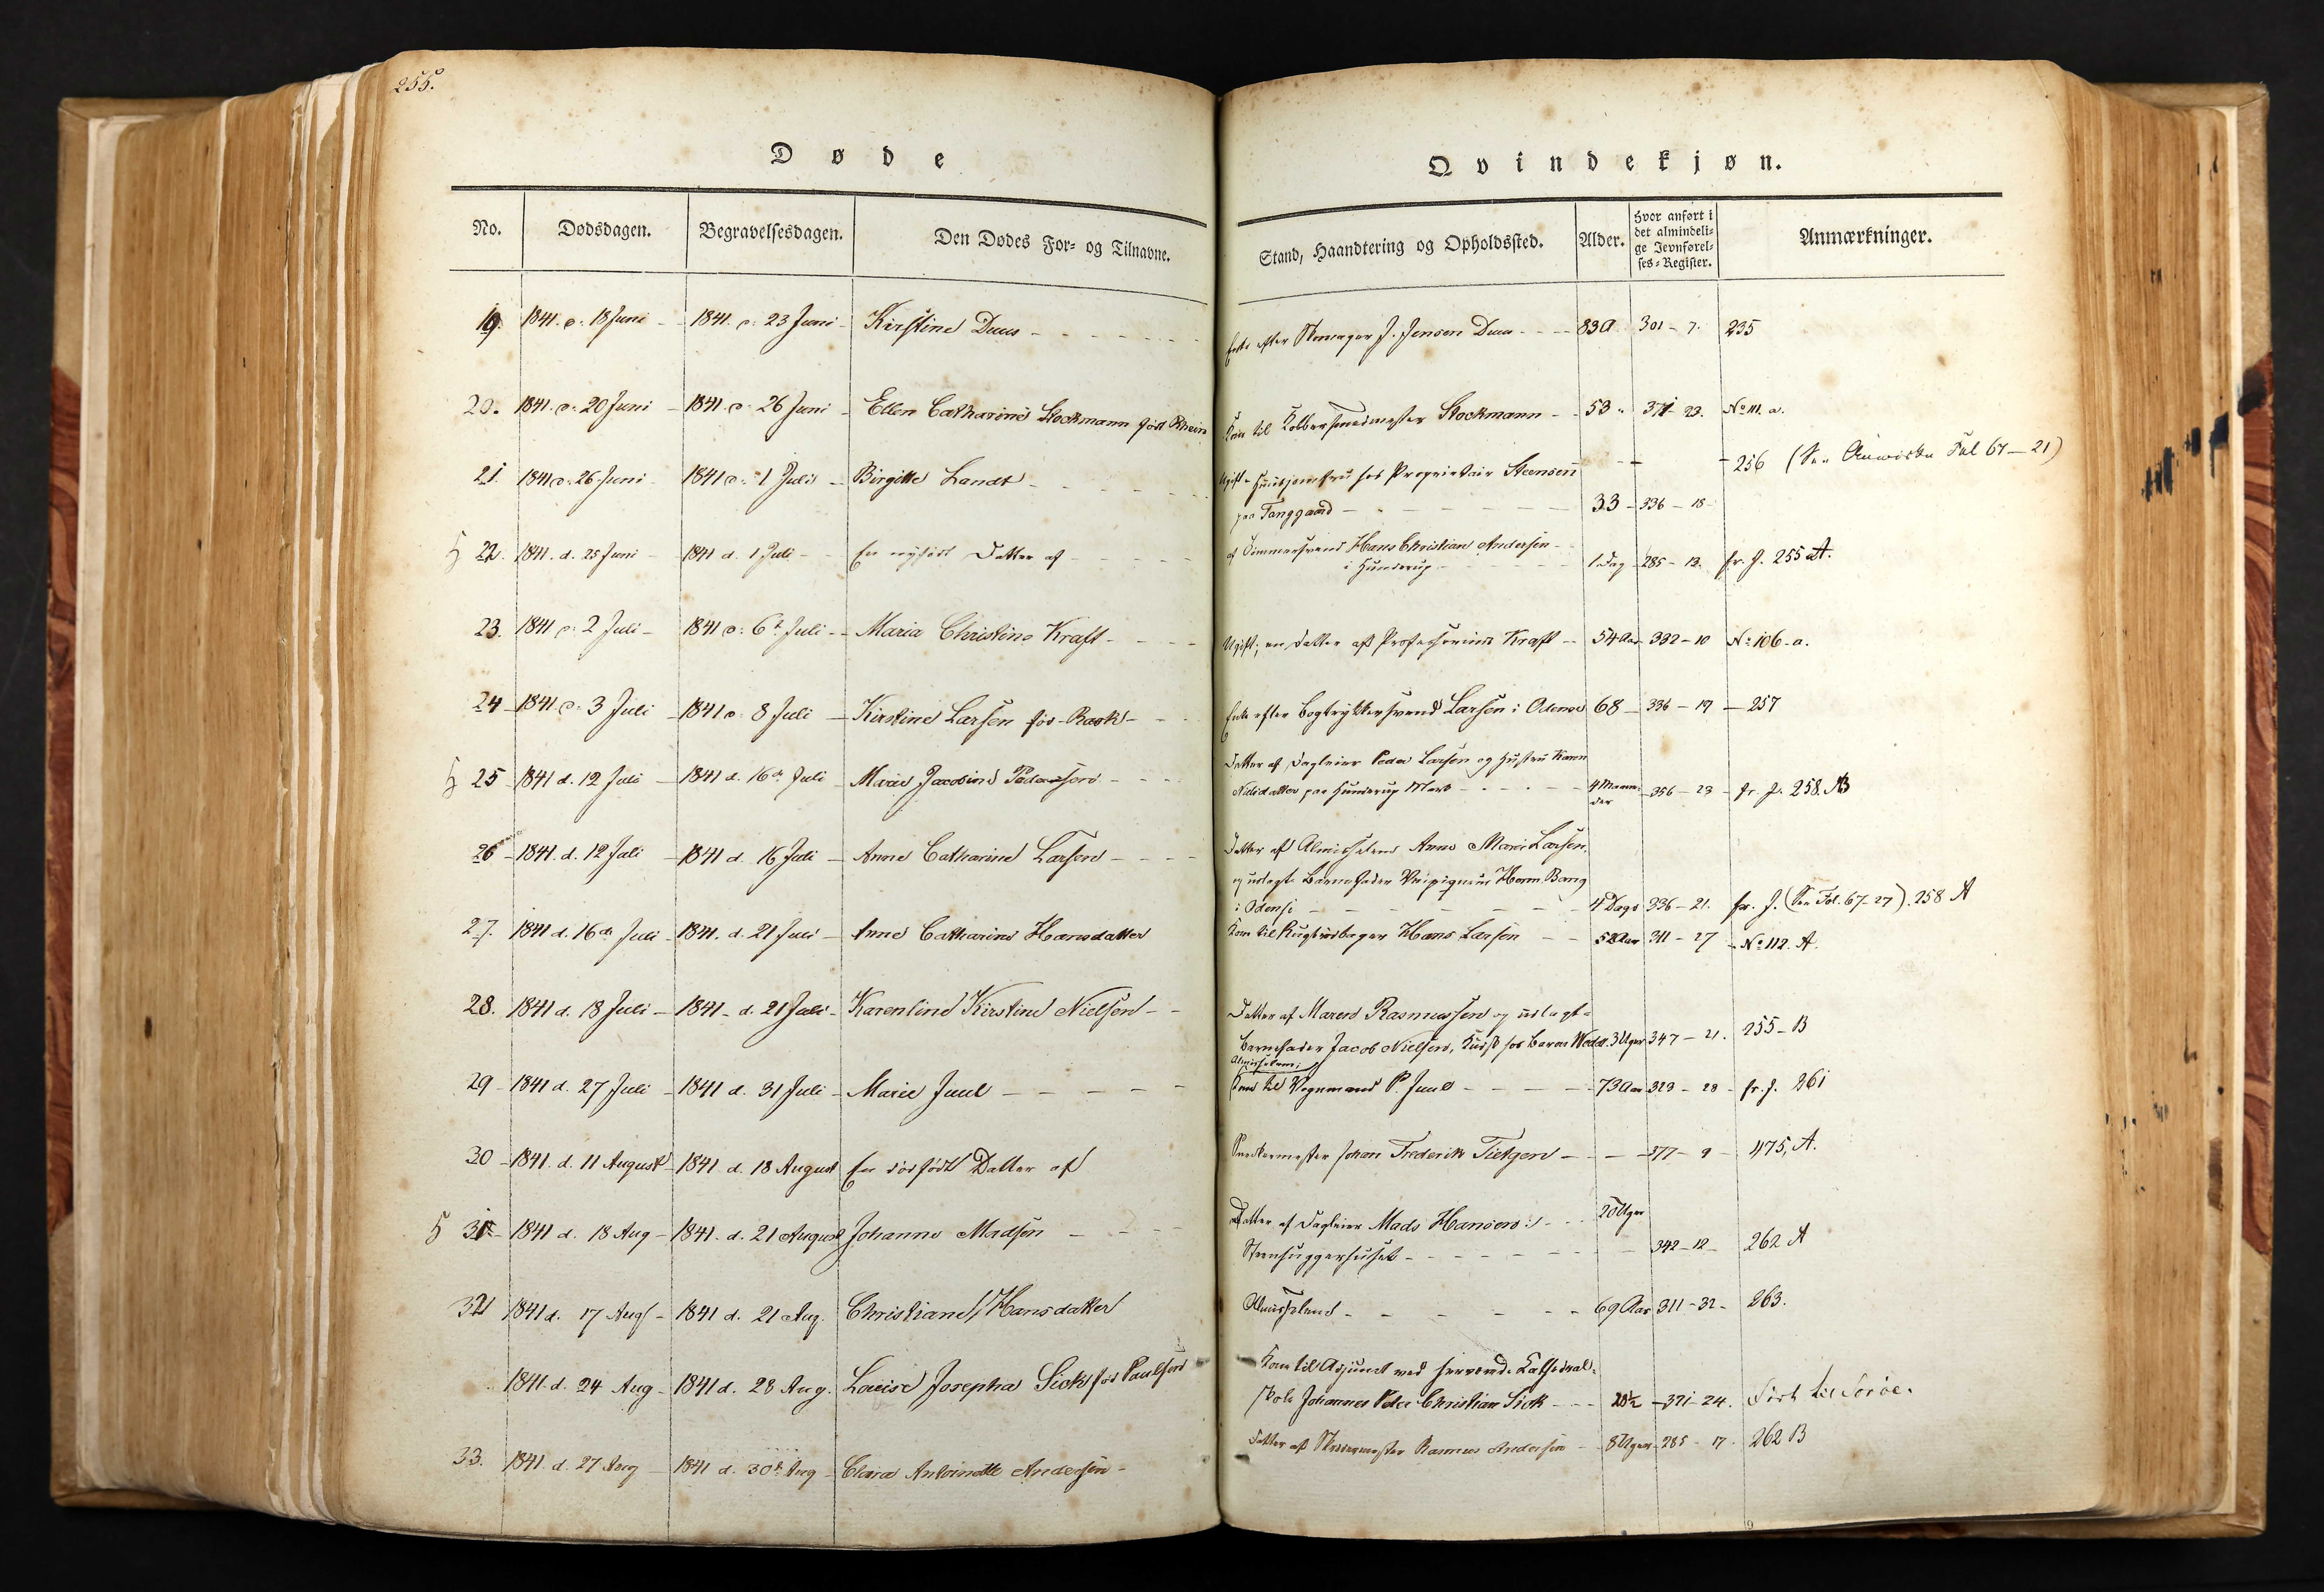 255.
Døde
Qvindekjøn.
No. Dødsdagen. Begravelsesdagen. Den Dødes For- og Tilnavne. Stand, Haandtering og Opholdssted. Alder. Hvor anført i det almindelige Jevnførelses-Register. Anmærkninger.
19. 1841. d. 18 Juni 1841. d. 23 Juni Kirstine Duus Enke efter J. Jensen Duus 83 A 301 - 7. 235
20. 1841. d. 20 Juni 1841. d. 26 Juni Ellen Catharine Stockmann født Rhein Kone til Kobbersmedmester Stockmann 53 371 - 23. No 111. a.
21. 1841 d. 26 Juni 1841 d. 1 Juli Birgitte Landt Ugift - Huusjomfru hos Proprietair Steensen 256 (See Fol 67 - 21)
paa Fanggaard 33 - 336 - 18
22. 1841. d. 25 Juni 1841 d. 1 Juli En nyfødt Datter af af Tømmersvend Hans Christian Andersen
i Hunderup 1 Dag 285 - 12. fr. J. 255 A.
23. 1841 d. 2 Juli 1841 d. 6te Juli Maria Christine Kraft Ugift; en Datter af Kraft 54 Aar 332 - 10 No 106 - a.
24 1841 d. 3 Juli 1841 d. 8 Juli Kirstine Larsen fød Rask Enke efter Bogtrykkersvend Larsen i Odense 68 336 - 19 257
25 1841 d. 12 Juli 1841 d. 16de Juli Marie Jacobine Pedersen Datter af Dagleier Peder Larsen og Hustru Karen
Nielsdatter paa Hunderup Mark 4 Maaneder 356 - 23 fr. J. 258. B
26 1841. d. 12 Juli 1841 d. 16 Juli Anne Catharine Larsen Datter af Almisselem Anne Marie Larsen,
og udlagte Barnefader Herm. Bang
i Odense 4 Dage 336 - 21. fr. J. (See Fol. 67 - 27). 258 A
27. 1841 d. 16de Juli 1841. d. 21 Juli Anne Catharine Hansdatter Kone til Rugbrødsbager Hans Larsen 52 Aar 311 - 27 No 112. A.
28. 1841 d. 18 Juli 1841 - d. 21 Juli Karenline Kirstine Nielsen Datter af Maren Rasmussen og udlagte
Barnefader Jacob Nielsen, Kudsk hos Baron Wedell. 3 Uger 347 - 21. 255 - B
Almisselem;
29 1841 d. 27 Juli 1841 d. 31 Juli Marie Juul Kone til Vognmand P. Juul 73 Aar 323 - 28 fr. J. 261
30 1841. d. 11 August 1841. d. 18 August En dødfødt Datter af Snedkermester Johan Frederik Tietgen 377 - 9 475, A.
31 1841 d. 18 Aug 1841. d. 21 August Johanne Madsen Datter af Dagleier Mads Hansen i 20 Uger
Steenhuggerhuset 342 - 12 262 A
32 1841 d. 17 Aug 1841 d. 21 Aug. Christiane Hansdatter Almisselem 69 Aar 311 - 32 263.
1841 d. 24 Aug 1841 d. 28 Aug. Louise Josepha Sick fød Paulsen Kone til Adjunct ved herværende Cathedral-
skole Johannes Peter Christian Sick 20½ 371 - 24. Ført til Sorøe.
33. 1841 d. 27 Aug 1841 d. 30te Aug Clara Antoinette Andersen Datter af Skrædermester Rasmus Andersen 8 Uger 285 - 17. 262 B